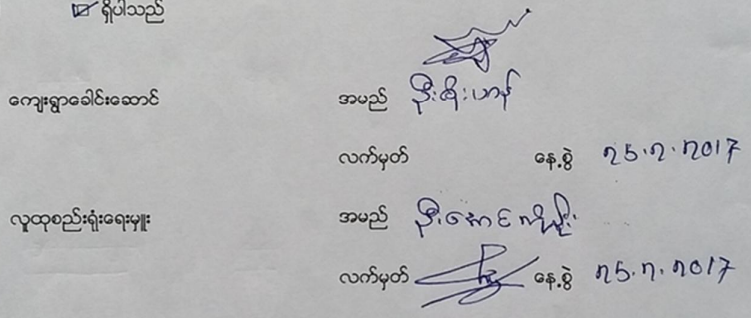 ရှိပါသည်
ကျေးရွာခေါင်းဆောင် အမည် ဦး စိုး ဟန်
လက်မှတ် နေ့စွဲ 25.7.2017
လူထုစည်းရုံးရေးမှူး အမည် ဦးအောင်ကိုဦး
လက်မှတ် နေ့စွဲ 25.7.2017